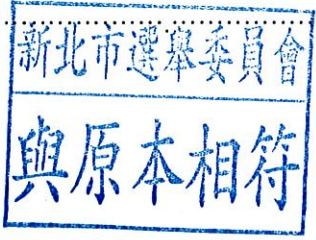 新北市選舉委員會
與原本相符